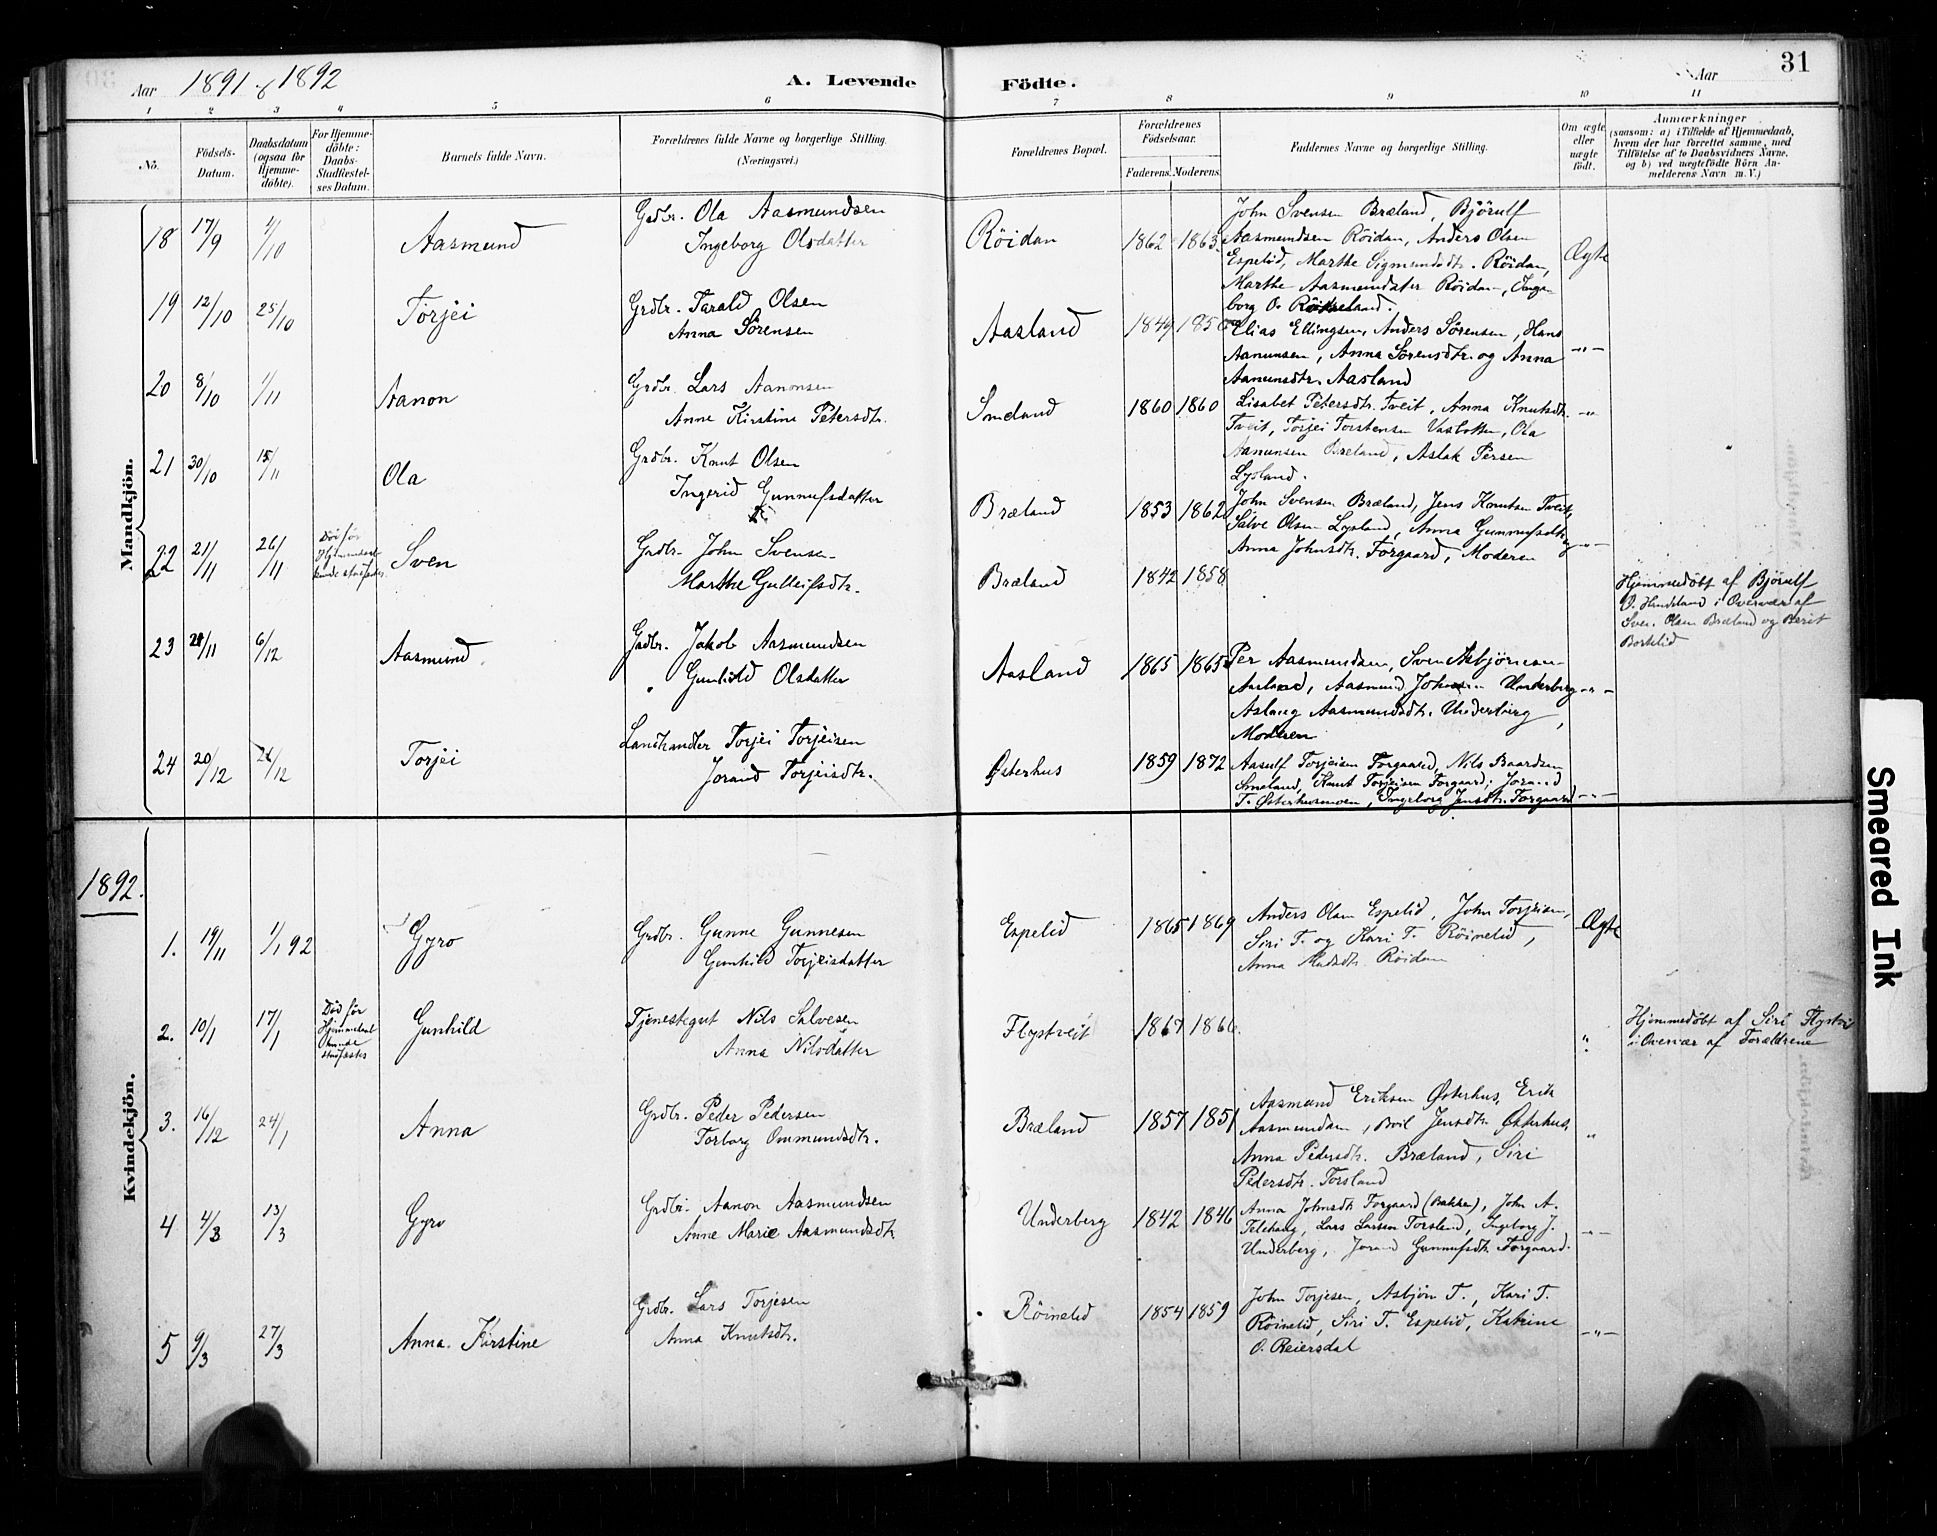 31
Aar 1891 & 1892
A. Levende Födte.
Aar
1 2 3 4 5 6 7 8 9 10 11
No.
Födsels-Datum.
Daabsdatum (ogsaa for Hjemme-döbte).
For Hjemme-döbte: Daabs-Stadfæstel-ses Datum.
Barnets fulde Navn.
Forældrenes fulde Navne og borgerlige Stilling. (Næringsvei.)
Forældrenes Bopæl.
Forældrenes Födselsaar.
Faderens. Moderens.
Faddernes Navne og borgerlige Stilling.
Om ægte eller uægte födt.
Anmærkninger
(saasom: a) i Tilfælde af Hjemmedaab,
hvem der har forrettet samme, med
Tilföielse af to Daabsvidners Navne,
og b) ved uægtefödte Börn An-
melderens Navn m. V.)
Mandkjön.
18 17/9 4/10 Aasmund
Grdbr. Ola Aasmundsen
Ingeborg Olsdatter
Röidan 1862 1863
John Svensen Bræland, Björulf
Aasmundsen Röidan, Anders Olsen
Espelid, Marthe Sigmundsdtr. Röidan,
Marthe Aasmundsdtr Röidan, Inge-
borg O.
Ægte
19 12/10 25/10 Torjei
Grdbr. Tarald Olsen
Anna Sörensen
Aasland 1849 1850
Elias Ellingsen, Anders Sörensen, Hans
Aanunsen, Anna Sörensdtr. og Anna
Aanunsdtr. Aasland
-"-
20 8/10 1/11 Aanon
Grdbr. Lars Aanonsen
Anne Kirstine Petersdtr.
Smeland 1860 1860
Lisabet Petersdtr. Tveit, Anna Knutsdtr.
Tveit, Torjei Torstensen, Ola
Aanunsen Bræland, Aslak Persen
Lysland.
-"-
21 30/10 15/11 Ola
Grdbr. Knut Olsen
Ingerid Gunnufsdatter
Bræland 1853 1862
John Svensen Bræland, Jens Knutsen Tveit,
Salve Olsen Lysland, Anna Gunnufsdtr og
Anna Johnsdtr. Forgaard, Moderen
-"-
22 21/11 26/11
Död för
Hjemmedaab
kunde stadfæstes.
Sven
Grdbr. John Svensen
Marthe Gulleifsdtr.
Bræland 1842 1858
Hjemmedöbt af Björulf
O. i Overvær af
Sven Olsen Bræland og Berit
Borkelid
23 6/12 Aasmund.
Grdbr. Jakob Aasmundsen
" Gunhild Olsdatter
Aasland 1865 1865
Per Aasmundsen, Sven Asbjörnsen
Aasland, Aasmund Johnsen Underberg
Aslaug Aasmundsdtr. Underberg,
Moderen
-"-
24 20/12 26/12 Torjei
Landhandler Torjei Torjeisen
Jorand Torjeisdtr.
Østerhus 1859 1872
Aasulf Torjeisen Forgaard, Nils Baardsen
Smeland, Knut Torjeisen Forgaard, Jorand
T. Østerhusmoen, Ingeborg Jensdtr. Forgaard
-"-
1892.
Kvindekjön.
1. 19/11 1/1 92 Gyro
Grdbr. Gunne Gunnesen
Gunhild Torjeisdatter
Espelid 1865 1869
Anders Olsen Espelid, John Torjeisen,
Siri T. og Kari T. Röinelid,
Anna Madsdtr. Röidan
Ægte
2. 10/1 17/1
Död för
Hjemmedaab
kunde
stadfæstes
Gunhild
Tjenestegut Nils Salvesen
Anna Nilsdatter
Flystveit 1867 1866.
"
Hjemmedöbt af Siri Flystveit
i Overvær af Forældrene
3. 16/12 24/1 Anna
Grdbr. Peder Pedersen
Torborg Ommundsdtr.
Bræland 1857 1851
Aasmund Eriksen Østerhus, Erik
Aasmundsen, Boil Jensdtr. Østerhus,
Anna Pedersdtr. Bræland, Siri
Pedersdtr. Torsland
"
4 4/3 13/3 Gyro
Grdbr. Aanon Aasmundsen
Anne Marie Aasmundsdtr.
Underberg 1842 1846
Anna Johnsdtr. Forgaard (Bakken), John A.
Telehaug, Lars Larsen Torsland, Ingeborg J.
Underberg, Jorand Gunnufsdtr. Forgaard.
-"-
5 9/3 27/3 Anna Kirstine
Grdbr. Lars Torjesen
Anna Knutsdtr.
Röinelid 1854 1859
John Torjesen, Asbjörn T., Kari T.
Röinelid, Siri T. Espelid, Katrine
O. Reiersdal
-"-
Smeared Ink